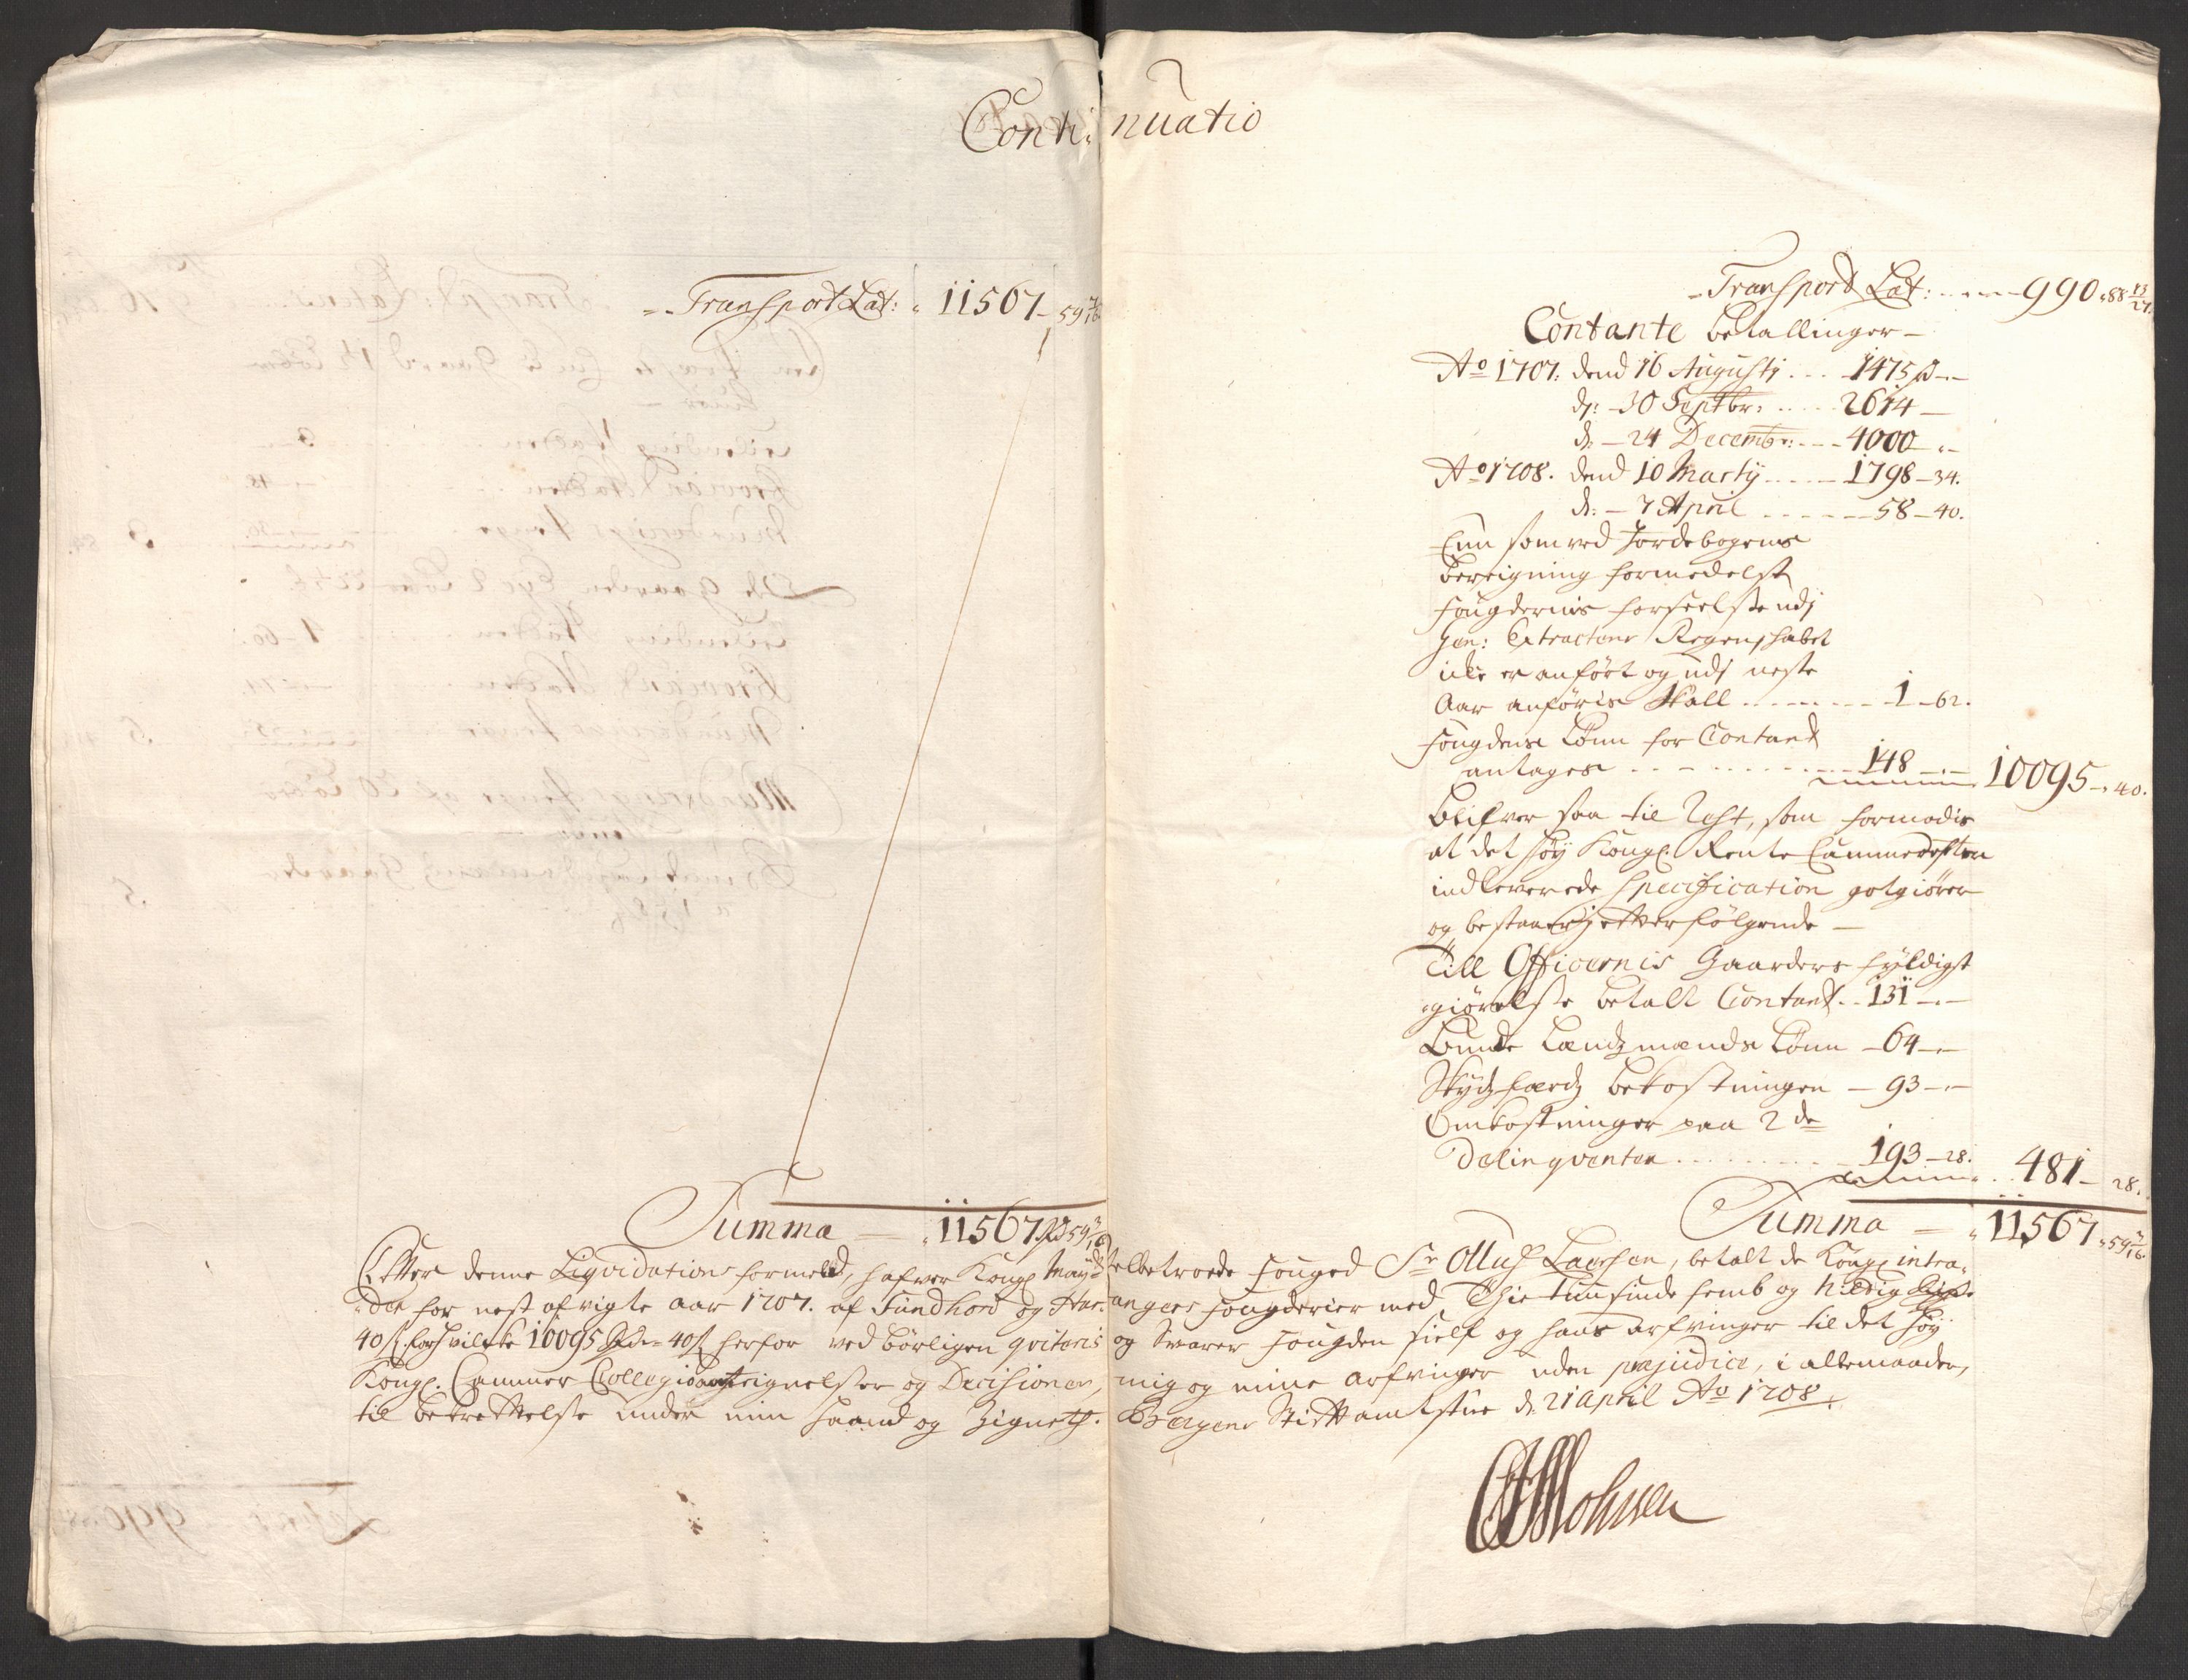 Continuatio
Transport Lat: 11567 - 59 3/16
Summa — 11567 Rd 59 3/16
Transport Lat: - 990 - 88 13/27
Contante betallinger —
Ao 1707. dend 16 Augustj - 1475 Rd -
d: 30 Septbr: - 2614 -
d: - 24 Decembr: - 4000 -
Ao 1708. dend 10 Martij - 1798 - 34.
d: - 7 April - 58 - 40.
Enn som ved Jordebogens
bereigning formedelst
fougdernis forseelse udj
Gen: Extractens Regenskabet
icke er anført og udj neste
Aar anføris skall - 1 - 62.
fougdens Lønn for Contant
antages - 148 - 10095 - 40.
blifver saa til Rest, som formodis
at det høy Kongl. Rente Cammer efter
indleverede Specification gotgiører
og bestaar j efterfølgende —
Till Officernis Gaarders fyldist
giørelse betalt Contant - 131 -
Bunde Lændzmænds Lønn - 64 -
Skydzferdz bekostningen - 93 -
Omkostninger paa 2de
Delinqventer - 193 - 28. 481 - 28.
Summa — 11567 - 59 3/16
Efter denne Liqvidations formeld, hafver Kongl May:tz velbetroede fouged Sr Olluf Larsen, betalt de Kongl intra-
der for nest afvigte aar 1707. af Sundhord og Hardangers fougderier med Thie tuusinde femb og Nitdtj Rixdr
40 s. for hvilcke 10095 Rdr - 40 s herfor ved børligen qviteris og svarer fougden sielf og hans arfvinger til det høy
Kongl. Cammer Collegio antegnelser og Decisioner, mig og mine arfvinger uden præjudice, i alle maader,
til bekreftelse under min haand og Zignete. Bergens Stiftamtstue d. 21 April Ao 1708.